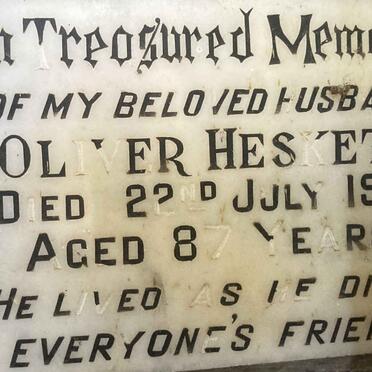 n Treasured Memo
OF MY BELOVED HUSBA
OLIVER HESKET
DIED 22ND JULY 19
AGED 87 YEAR
HE LIVED AS HE DI
EVERYONE'S FRIE